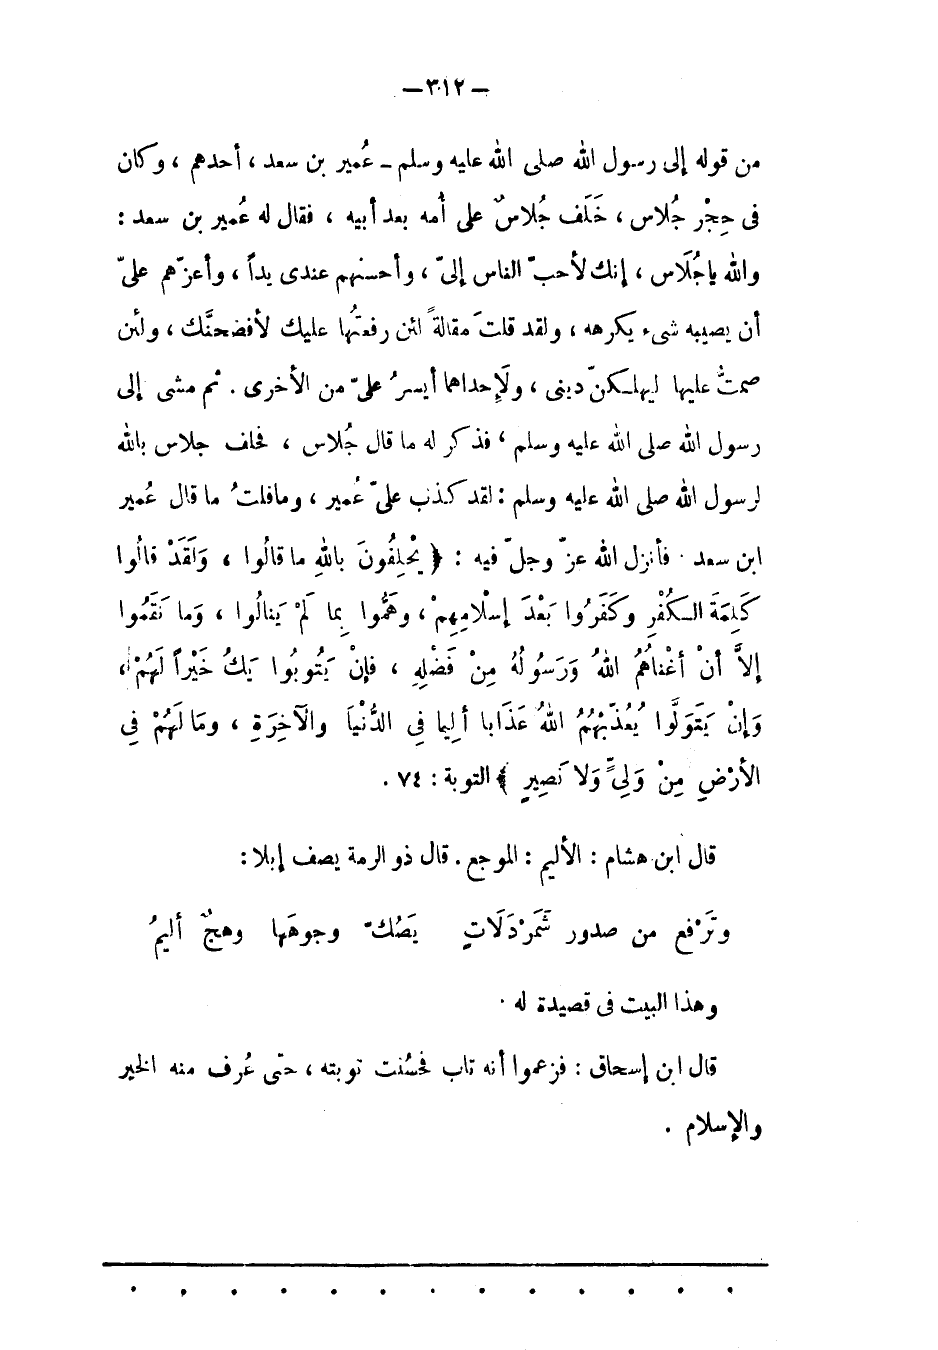 — ٣١٢ —
من قوله إلى رسول الله صلى الله عليه وسلم ـ عُمير بن سعد ، أحدهم ، وكان
فى حِجْر جُلاس ، خَلَف جُلاسٌ على أُمه بعد أبيه ، فقال له عُمير بن سعد :
والله يا جُلَاس ، إنك لأحبّ الناس إلىّ ، وأحسنهم عندى يداً ، وأعزّهم علىّ
أن يصيبه شىء يكرهه ، ولقد قلتَ مقالةً لئن رفعتُها عليك لأفضحنَّك ، ولئن
صمتُّ عليها ليهلـكنّ دينى ، ولَإحداهما أيسرُ علىّ من الأخرى . ثم مشى إلى
رسول الله صلى الله عليه وسلم ، فذكر له ما قال جُلاس ، فحلف جلاس بالله
لرسول الله صلى الله عليه وسلم : لقد كذب علىّ عُمير ، وما قلتُ ما قال عُمير
ابن سعد . فأنزل الله عزّ وجلّ فيه : ﴿ يَحْلِفُونَ باللهِ ما قالُوا ، وَلَقَدْ قالُوا
كَلِمَةَ الـكُفْرِ وكَفَرُوا بَعْدَ إسْلامِهِمْ ، وهَمُّوا بِما لَمْ يَنالُوا ، وَما نَقَمُوا
إلاَّ أنْ أغْناهُمُ اللهُ وَرَسُولُهُ مِنْ فَضْلِهِ ، فإنْ يَتُوبُوا يَكُ خَيْراً لَهُمْ ،
وَإنْ يَتَوَلَّوا يُعَذّبْهُمُ اللهُ عَذَابا ألِيما فِى الدُّنْيا والآخِرَةِ ، ومَا لَهُمْ فِى
الأرْضِ مِنْ وَلِىٍّ وَلا نَصِيرٍ ﴾ التوبة : ٧٤ .
قال ابن هشام : الأليم : الموجع . قال ذو الرمة يصف إبلا :
وتَرْفع من صدور شَمَرْدَلَاتٍ يَصُكّ وجوهَها وهجٌ أليمُ
وهذا البيت فى قصيدة له .
قال ابن إسحاق : فزعموا أنه تاب فحسُنت توبته ، حتى عُرف منه الخير
والإسلام .